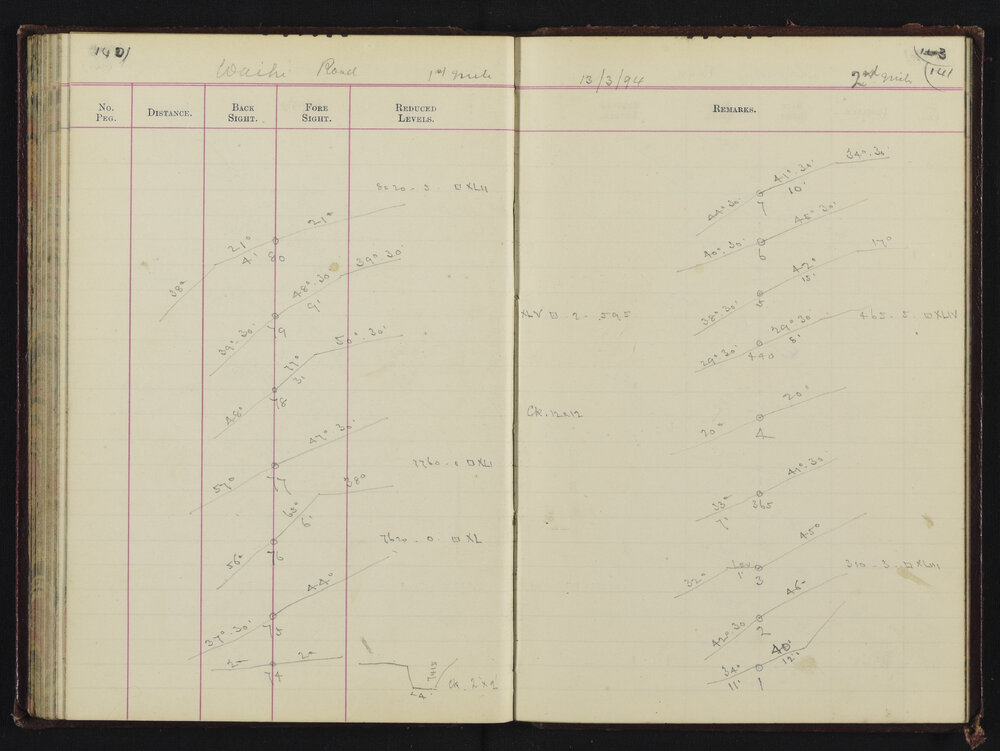 140
Waihi Road 1st mile
No. Peg. Distance. Back Sight. Fore Sight. Reduced Levels.
8020 - 3 □ XLII
21° 21°
4' 80
38°
48°.30' 39°.30'
9'
39°.30' 79
50°.30'
77°
3'
48° 78
47°.30'
57° 77
7760 - 0 □ XLI
38°
65°
6'
56° 76
7620 - 0 □ XL
44°
37°.30' 75
2° 2°
74
7415
4
Ck. 2 x 2
13/3/94 2nd mile
141
Remarks.
34°.30'
41°.30'
10'
44°.30' 7
45°.30'
40°.30' 6
17°
42°
15'
38°.30' 5
XLV □ - 2 - 595
465 - 5 - □ XLIV
29°.30'
5'
29°.30' 440
Ck. 12x12
20°
20° 4
41°.30'
33° 365
7'
45°
32° 1' 3
310 - 3 - □ XLIII
45°
42°.30 2
40°
34° 12'
11' 1